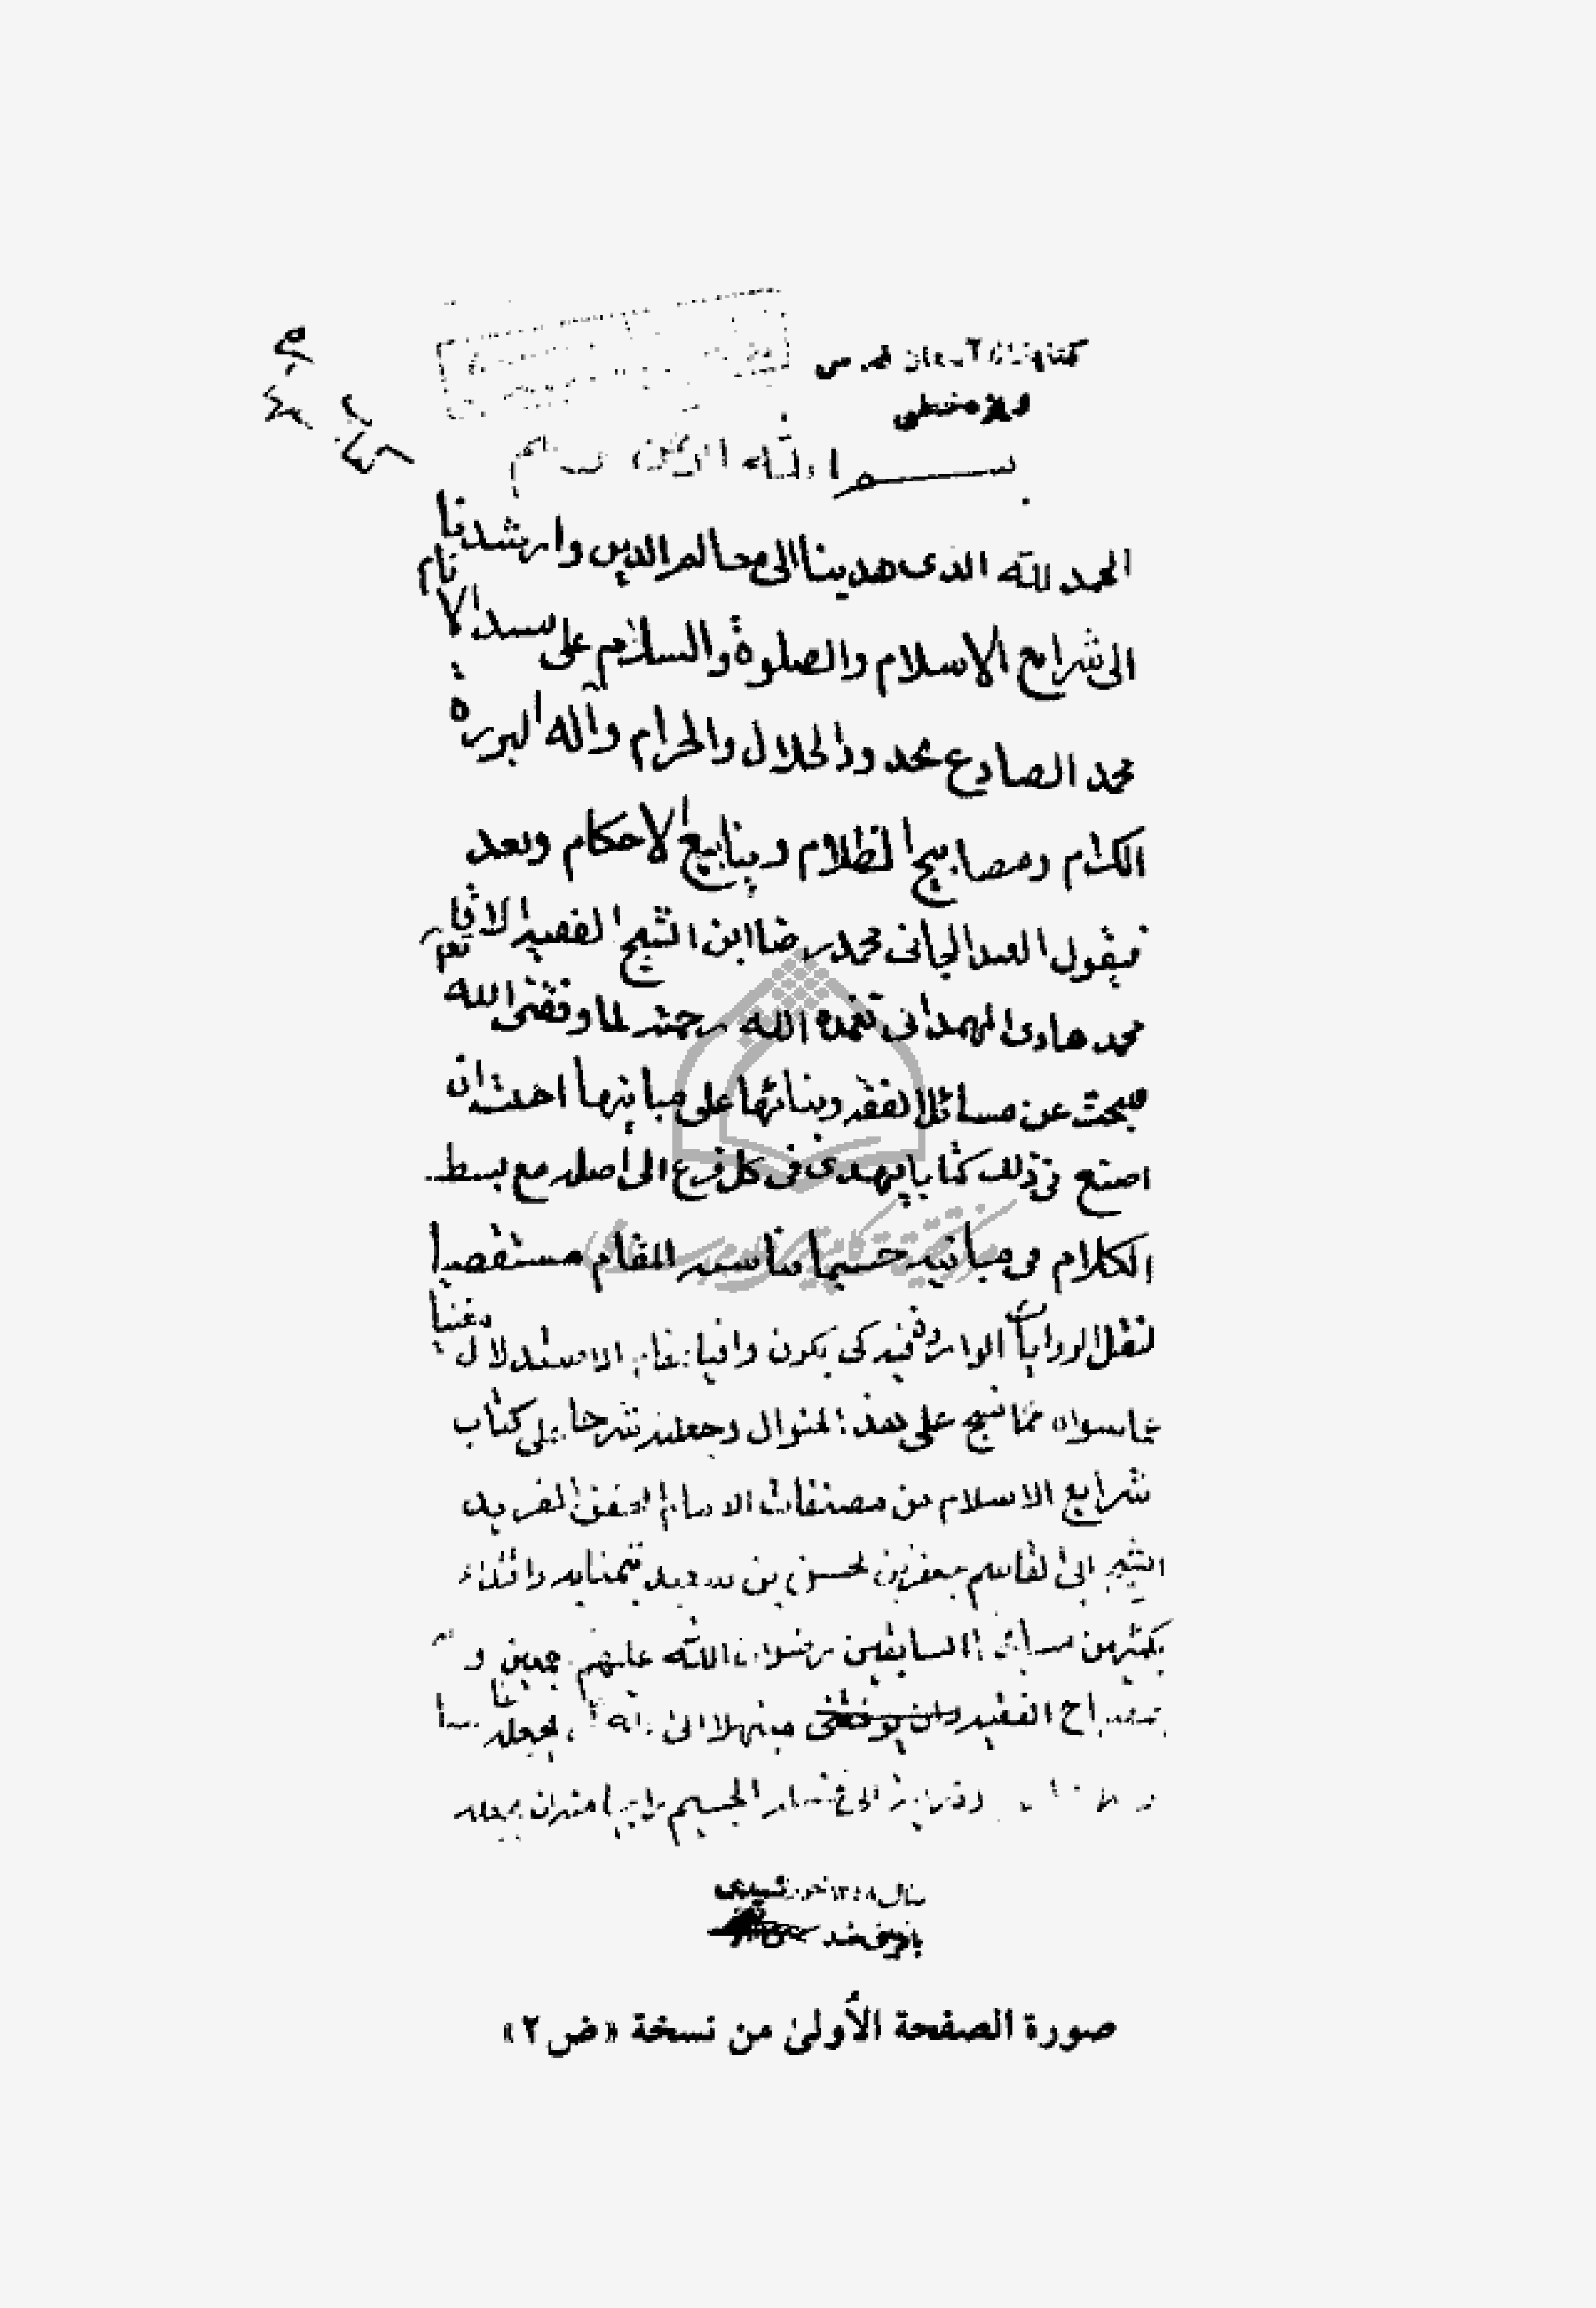 كتابخانه آستان قدس
بسم الله الرحمن الرحيم
كتاب
الحمد لله الذى هدينا الى معالم الدين وارشدنا
الى شرايع الاسلام والصلوة والسلام على سيد الانام
محمد الصادع بحدود الحلال والحرام وآله البررة
الكرام ومصابيح الظلام وينابيع الاحكام وبعد
فيقول العبد الجانى محمد رضا ابن الشيخ الفقيه الاقا
محمد هادى الهمدانى تغمده الله برحمته لما وفقنى الله تعم
للبحث عن مسائل الفقه وبنائها على مبانيها احببت ان
اصنع فى ذلك كتابا يهدى فى كل فرع الى اصله مع بسط
الكلام فى مبانيه حسبما يناسبه المقام مستقصيا
لنقل الروايات الواردة فيه كى يكون وافيا بمقام الاستدلال مغنيا
عما سواه مما نسج على هذا المنوال وجعلته شرحا على كتاب
شرايع الاسلام من مصنفات الامام المحقق الفريد
الشيخ ابى القاسم جعفر بن الحسن بن سعيد تيمنا به واقتداء
بكثير من السابقين رضوان الله عليهم اجمعين و
بمصباح الفقيه مبتهلا الى الله ان يجعله
الجسيم راجيا منه ان يجعله
بازبينى شد
صورة الصفحة الأولىٰ من نسخة «ض٢»